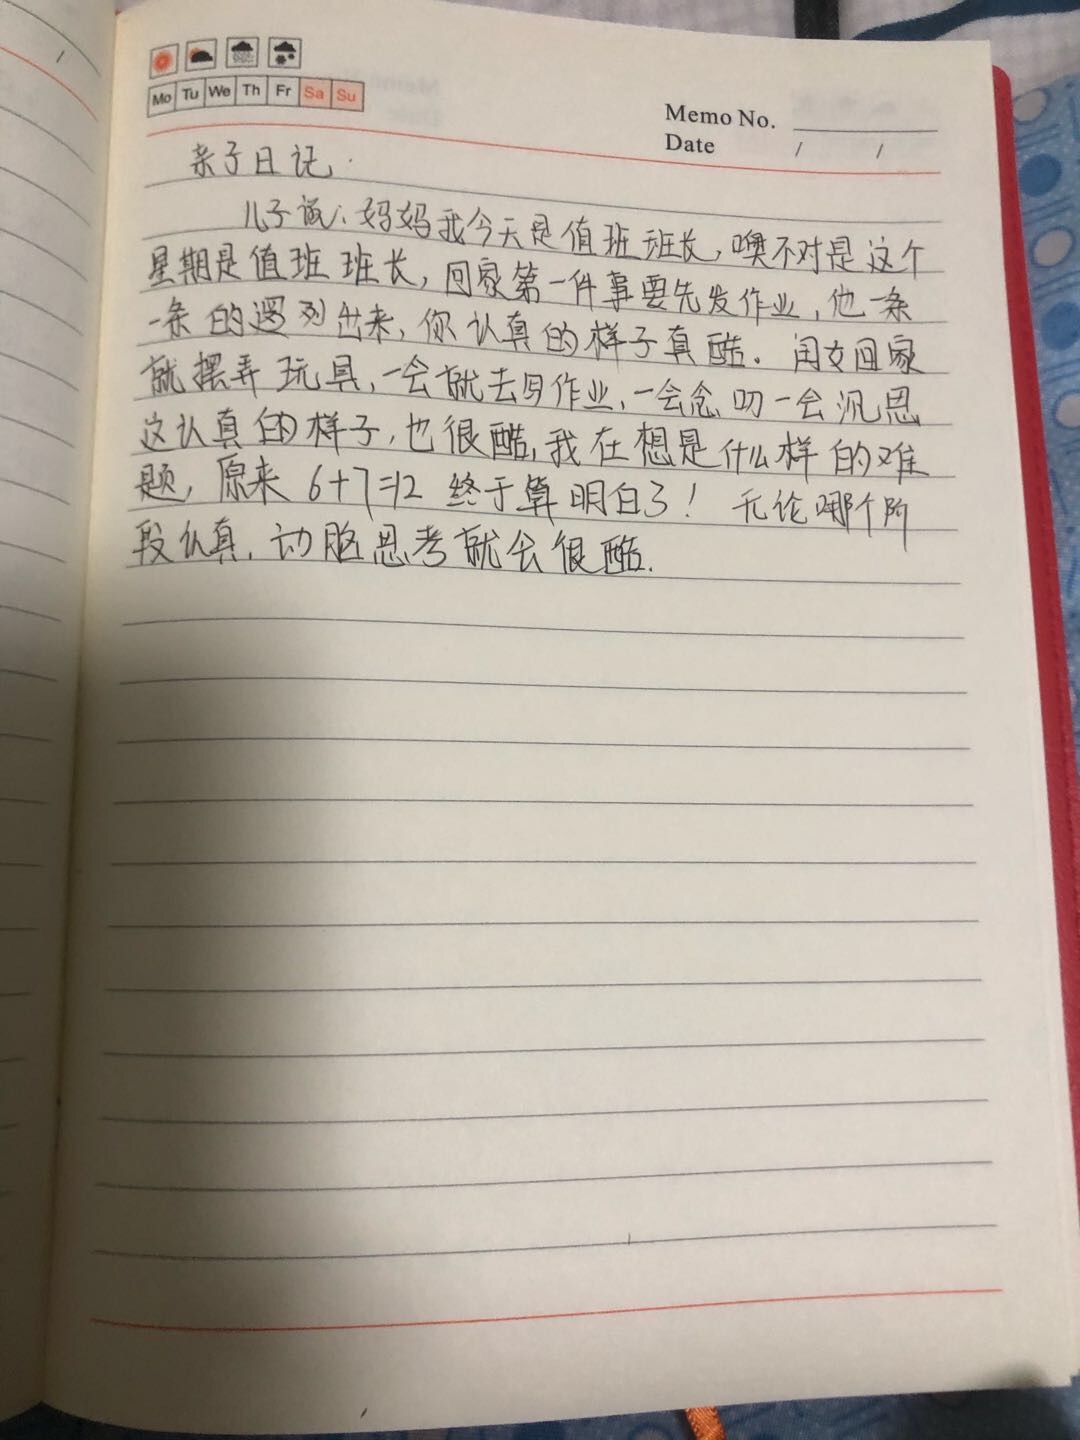 Mo Tu We Th Fr Sa Su
Memo No.
Date / /
亲子日记.
儿子说:妈妈我今天是值班班长,噢不对是这个
星期是值班班长,回家第一件事要先发作业,他一条
一条的逻列出来,你认真的样子真酷.闺女回家
就摆弄玩具,一会就去写作业,一会念叨一会沉思
这认真的样子,也很酷,我在想是什么样的难
题,原来6+7=12终于算明白了!无论哪个阶
段认真,动脑思考就会很酷.